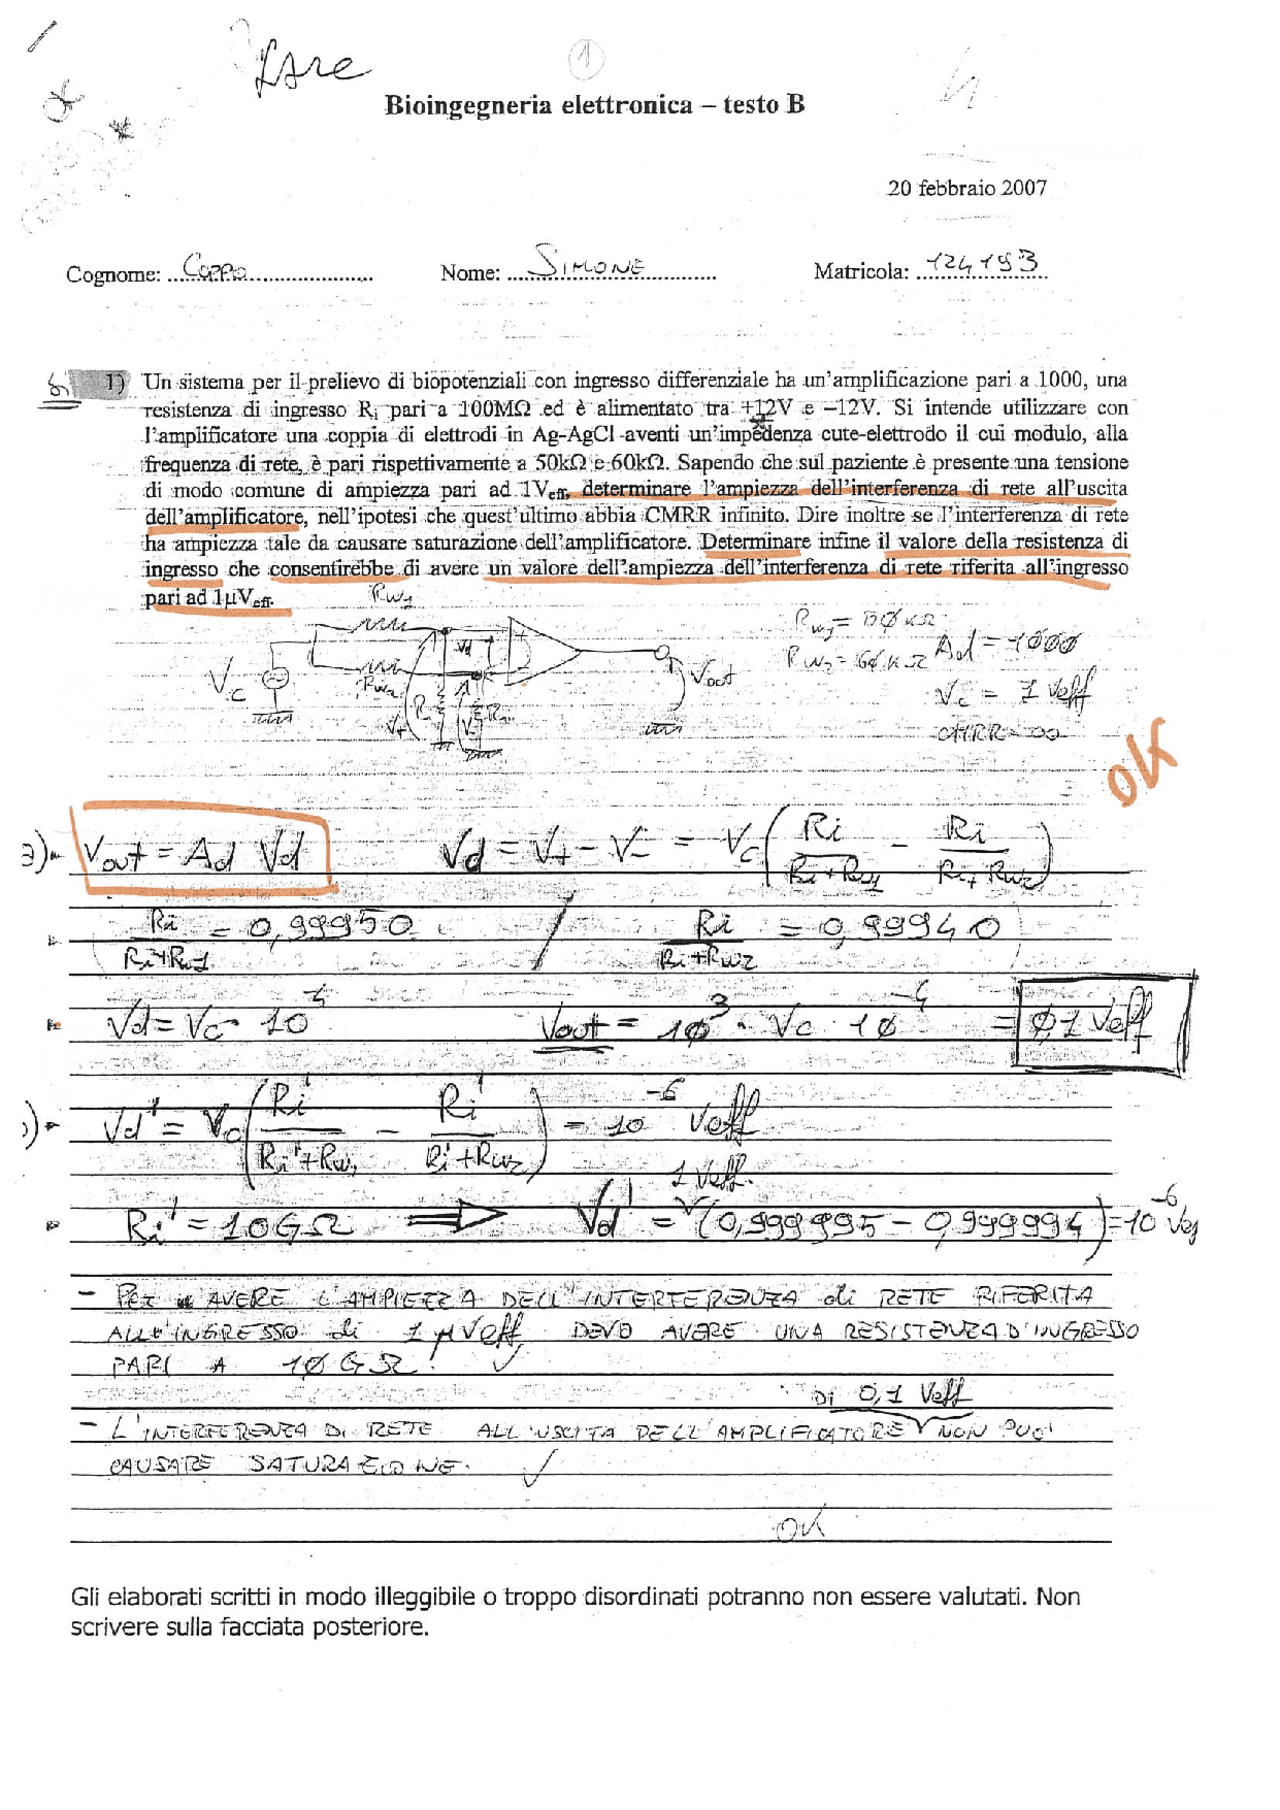 Esare
1
Bioingegneria elettronica – testo B
20 febbraio 2007
Cognome: Coppo Nome: SIMONE Matricola: 124193
1) Un sistema per il prelievo di biopotenziali con ingresso differenziale ha un'amplificazione pari a 1000, una
resistenza di ingresso Ri pari a 100MΩ ed è alimentato tra +12V e –12V. Si intende utilizzare con
l'amplificatore una coppia di elettrodi in Ag-AgCl aventi un'impedenza cute-elettrodo il cui modulo, alla
frequenza di rete, è pari rispettivamente a 50kΩ e 60kΩ. Sapendo che sul paziente è presente una tensione
di modo comune di ampiezza pari ad 1Veff, determinare l'ampiezza dell'interferenza di rete all'uscita
dell'amplificatore, nell'ipotesi che quest'ultimo abbia CMRR infinito. Dire inoltre se l'interferenza di rete
ha ampiezza tale da causare saturazione dell'amplificatore. Determinare infine il valore della resistenza di
ingresso che consentirebbe di avere un valore dell'ampiezza dell'interferenza di rete riferita all'ingresso
pari ad 1µVeff.
Rw1
Rw1 = 50kΩ
Rw2 = 60kΩ Ad = 1000
Vc Rw2 Vd Vout
Vc = 1 Veff
Ri V+ V- Ri
CMRR = ∞
OK
a) Vout = Ad Vd Vd = V+ - V- = Vc (Ri/(Ri+Rw1) - Ri/(Ri+Rw2))
Ri/(Ri+Rw1) = 0,99950 / Ri/(Ri+Rw2) = 0,99940
Vd = Vc · 10^-4 Vout = 10^3 · Vc · 10^-4 = 0,1 Veff
) Vd' = Vc (Ri'/(Ri'+Rw1) - Ri'/(Ri'+Rw2)) = 10^-6 Veff
1 Veff.
Ri' = 10GΩ ⟹ Vd' = (0,999995 - 0,999994) = 10^-6 Veff
- PER AVERE L'AMPIEZZA DELL'INTERFERENZA di RETE RIFERITA
ALL'INGRESSO di 1 µVeff DEVO AVERE UNA RESISTENZA D'INGRESSO
PARI A 10 GΩ! ✓
DI 0,1 Veff
- L'INTERFERENZA DI RETE ALL'USCITA DELL'AMPLIFICATORE NON PUO'
CAUSARE SATURAZIONE. ✓
OK
Gli elaborati scritti in modo illeggibile o troppo disordinati potranno non essere valutati. Non
scrivere sulla facciata posteriore.